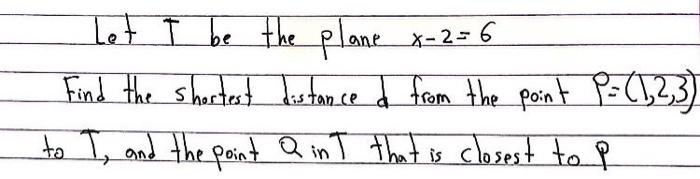 Let T be the plane x-2=6
Find the shortest distance d from the point P=(1,2,3)
to T, and the point Q in T that is closest to P